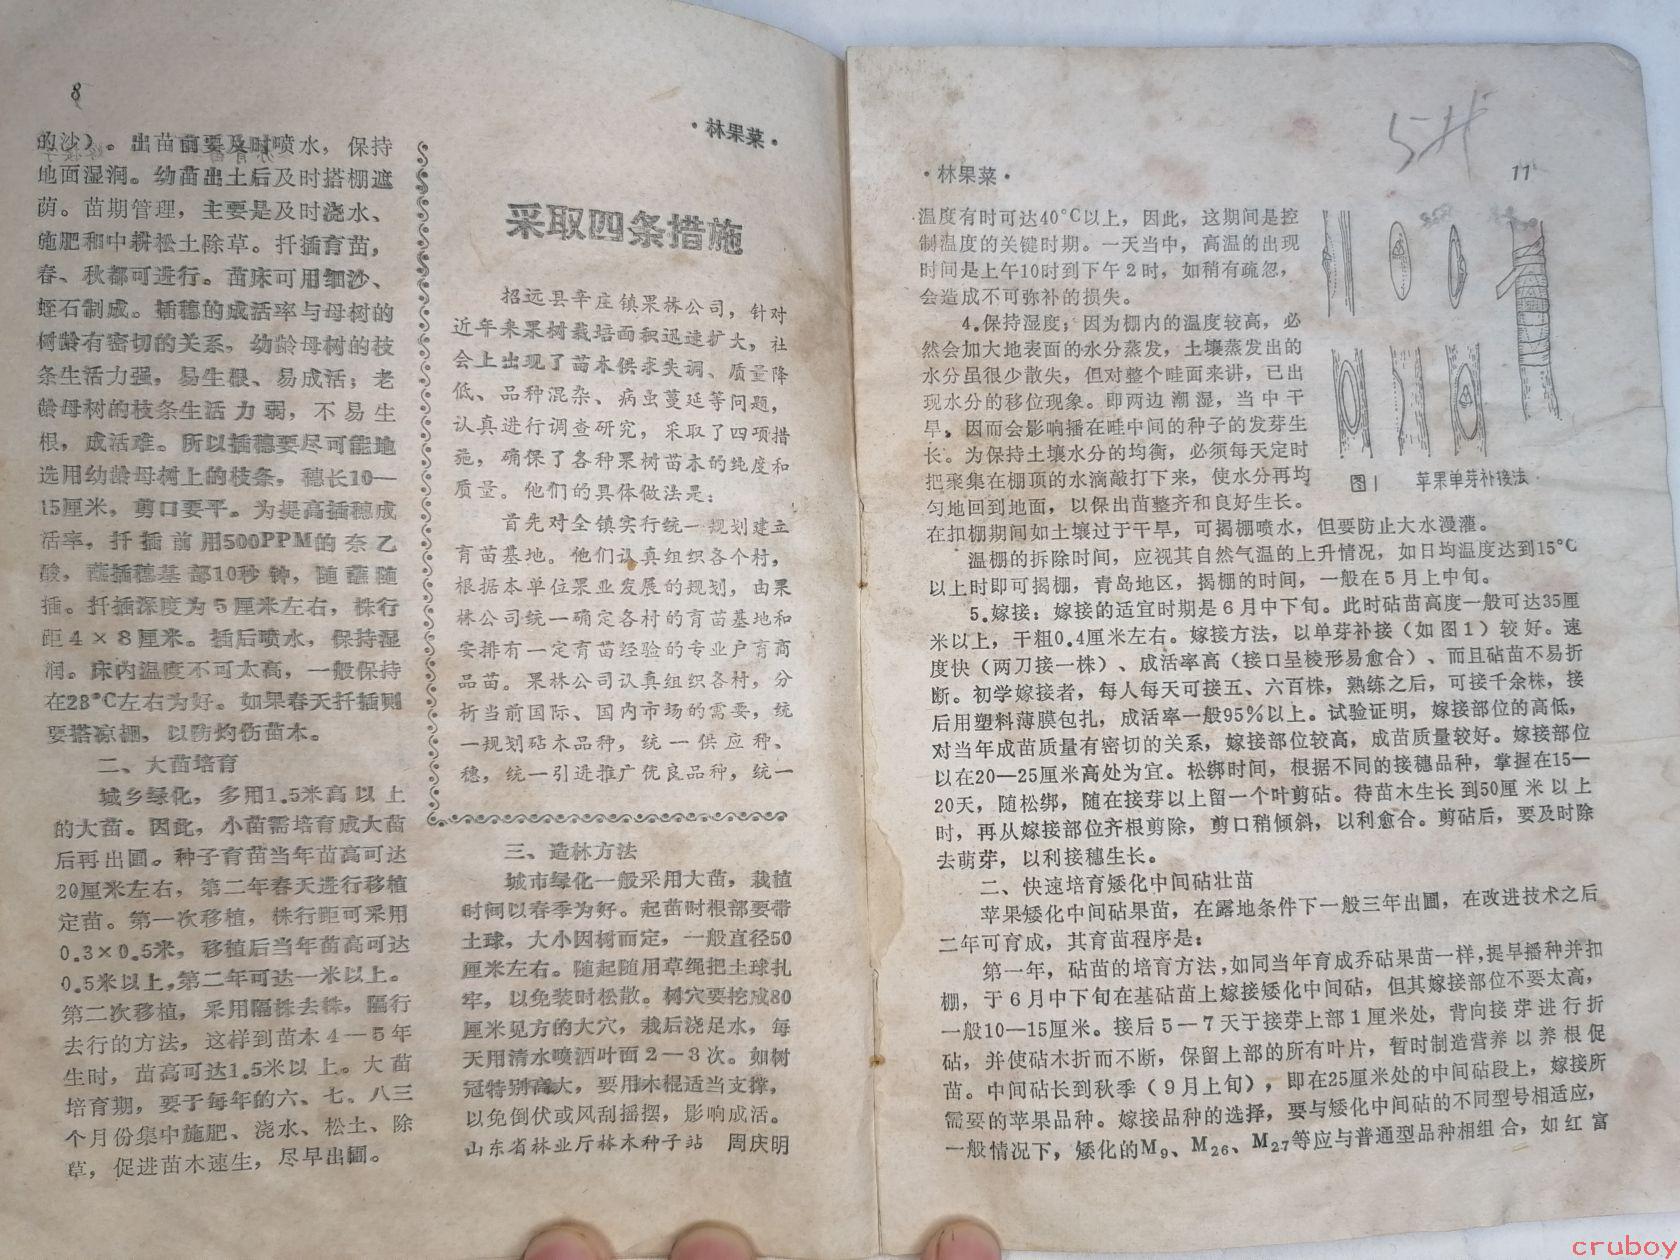 8
·林果菜·
的沙）。出苗前要及时喷水，保持
地面湿润。幼苗出土后及时搭棚遮
荫。苗期管理，主要是及时浇水、
施肥和中耕松土除草。扦插育苗，
春、秋都可进行。苗床可用细沙、
蛭石制成。插穗的成活率与母树的
树龄有密切的关系，幼龄母树的枝
条生活力强，易生根、易成活；老
龄母树的枝条生活力弱，不易生
根，成活难。所以插穗要尽可能地
选用幼龄母树上的枝条，穗长10—
15厘米，剪口要平。为提高插穗成
活率，扦插前用500PPM的奈乙
酸，蘸插穗基部10秒钟，随蘸随
插。扦插深度为5厘米左右，株行
距4×8厘米。插后喷水，保持湿
润。床内温度不可太高，一般保持
在28°C左右为好。如果春天扦插则
要搭凉棚，以防灼伤苗木。
二、大苗培育
城乡绿化，多用1.5米高以上
的大苗。因此，小苗需培育成大苗
后再出圃。种子育苗当年苗高可达
20厘米左右，第二年春天进行移植
定苗。第一次移植，株行距可采用
0.3×0.5米，移植后当年苗高可达
0.5米以上，第二年可达一米以上。
第二次移植，采用隔株去株，隔行
去行的方法，这样到苗木4—5年
生时，苗高可达1.5米以上。大苗
培育期，要于每年的六、七、八三
个月份集中施肥、浇水、松土、除
草，促进苗木速生，尽早出圃。
采取四条措施
招远县辛庄镇果林公司，针对
近年来果树栽培面积迅速扩大，社
会上出现了苗木供求失调、质量降
低、品种混杂、病虫蔓延等问题，
认真进行调查研究，采取了四项措
施，确保了各种果树苗木的纯度和
质量。他们的具体做法是：
首先对全镇实行统一规划建立
育苗基地。他们认真组织各个村，
根据本单位果业发展的规划，由果
林公司统一确定各村的育苗基地和
安排有一定育苗经验的专业户育商
品苗。果林公司认真组织各村，分
析当前国际、国内市场的需要，统
一规划砧木品种，统一供应种、
穗，统一引进推广优良品种，统一
三、造林方法
城市绿化一般采用大苗，栽植
时间以春季为好。起苗时根部要带
土球，大小因树而定，一般直径50
厘米左右。随起随用草绳把土球扎
牢，以免装时松散。树穴要挖成80
厘米见方的大穴，栽后浇足水，每
天用清水喷洒叶面2—3次。如树
冠特别高大，要用木棍适当支撑，
以免倒伏或风刮摇摆，影响成活。
山东省林业厅林木种子站 周庆明
·林果菜·
11
温度有时可达40°C以上，因此，这期间是控
制温度的关键时期。一天当中，高温的出现
时间是上午10时到下午2时，如稍有疏忽，
会造成不可弥补的损失。
4.保持湿度；因为棚内的温度较高，必
然会加大地表面的水分蒸发，土壤蒸发出的
水分虽很少散失，但对整个畦面来讲，已出
现水分的移位现象。即两边潮湿，当中干
旱，因而会影响播在畦中间的种子的发芽生
长。为保持土壤水分的均衡，必须每天定时
把聚集在棚顶的水滴敲打下来，使水分再均
匀地回到地面，以保出苗整齐和良好生长。
在扣棚期间如土壤过于干旱，可揭棚喷水，但要防止大水漫灌。
图1 苹果单芽补接法
温棚的拆除时间，应视其自然气温的上升情况，如日均温度达到15°C
以上时即可揭棚，青岛地区，揭棚的时间，一般在5月上中旬。
5.嫁接：嫁接的适宜时期是6月中下旬。此时砧苗高度一般可达35厘
米以上，干粗0.4厘米左右。嫁接方法，以单芽补接（如图1）较好。速
度快（两刀接一株）、成活率高（接口呈棱形易愈合）、而且砧苗不易折
断。初学嫁接者，每人每天可接五、六百株，熟练之后，可接千余株，接
后用塑料薄膜包扎，成活率一般95%以上。试验证明，嫁接部位的高低，
对当年成苗质量有密切的关系，嫁接部位较高，成苗质量较好。嫁接部位
以在20—25厘米高处为宜。松绑时间，根据不同的接穗品种，掌握在15—
20天，随松绑，随在接芽以上留一个叶剪砧。待苗木生长到50厘米以上
时，再从嫁接部位齐根剪除，剪口稍倾斜，以利愈合。剪砧后，要及时除
去萌芽，以利接穗生长。
二、快速培育矮化中间砧壮苗
苹果矮化中间砧果苗，在露地条件下一般三年出圃，在改进技术之后
二年可育成，其育苗程序是：
第一年，砧苗的培育方法，如同当年育成乔砧果苗一样，提早播种并扣
棚，于6月中下旬在基砧苗上嫁接矮化中间砧，但其嫁接部位不要太高，
一般10—15厘米。接后5—7天于接芽上部1厘米处，背向接芽进行折
砧，并使砧木折而不断，保留上部的所有叶片，暂时制造营养以养根促
苗。中间砧长到秋季（9月上旬），即在25厘米处的中间砧段上，嫁接所
需要的苹果品种。嫁接品种的选择，要与矮化中间砧的不同型号相适应，
一般情况下，矮化的M₉、M₂₆、M₂₇等应与普通型品种相组合，如红富
cruboy